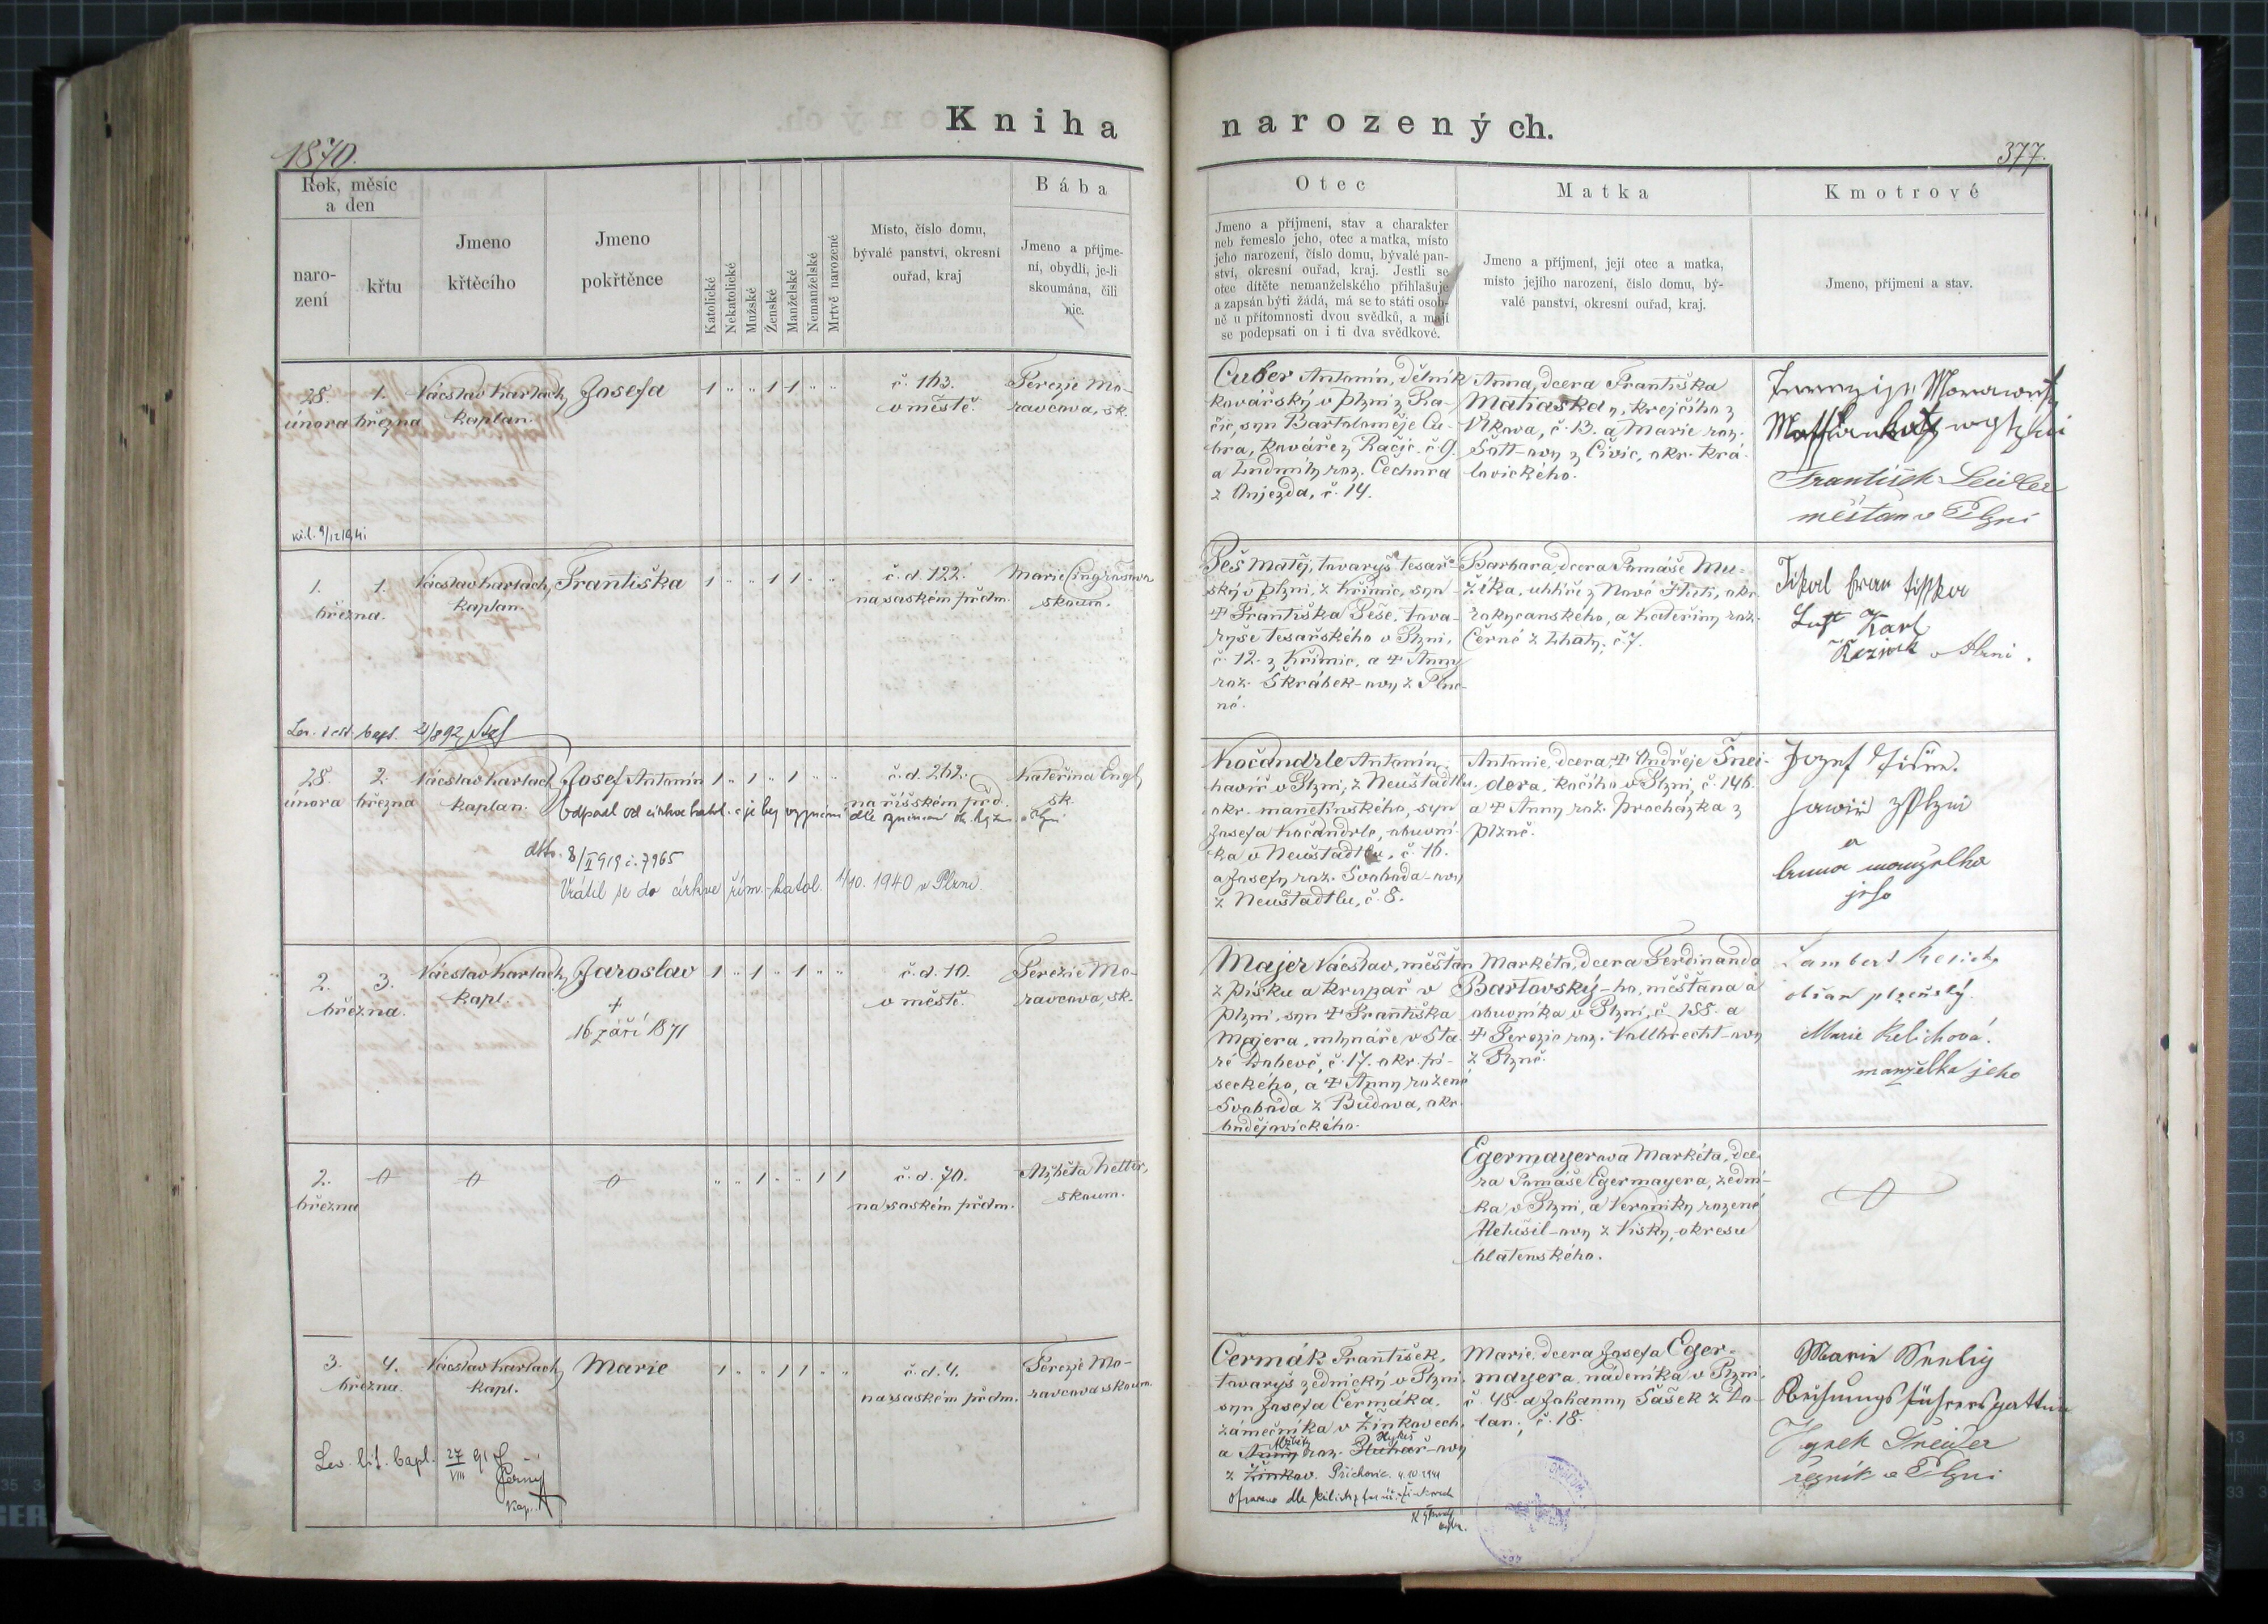 Kniha narozených.
1870.
377.
Rok, měsíc
a den
naro-
zení
křtu
Jmeno
křtěcího
Jmeno
pokřtěnce
Katolické
Nekatolické
Mužské
Ženské
Manželské
Nemanželské
Mrtvě narozené
Místo, číslo domu,
bývalé panství, okresní
ouřad, kraj
Bába
Jmeno a příjme-
ní, obydlí, je-li
skoumána, čili
nic.
Otec
Jmeno a příjmení, stav a charakter
neb řemeslo jeho, otec a matka, místo
jeho narození, číslo domu, bývalé pan-
ství, okresní ouřad, kraj. Jestli se
otec dítěte nemanželského přihlašuje
a zapsán býti žádá, má se to státi osob-
ně u přítomnosti dvou svědků, a mají
se podepsati on i ti dva svědkové.
Matka
Jmeno a příjmení, její otec a matka,
místo jejího narození, číslo domu, bý-
valé panství, okresní ouřad, kraj.
Kmotrové
Jmeno, příjmení a stav.
28.
února
1.
března
Václav Karlach,
kaplan.
Josefa
1 „ „ 1 1 „ „
č. 163.
v městě.
Terezie Mo-
ravcova, sk.
Cuber Antonín, dělník
kovářský v Plzni z Ra-
čic, syn Bartoloměje Cu-
bra, kováře z Račic. č 9.
a Ludmily roz. Čechura
z Oujezda, č. 14.
Anna, dcera Františka
Matiaska, krejčího z
Vlkova, č. 13. a Marie roz.
Šott-ovy z Čivic, okr. krá-
lovického.
František Seidler
měšťan v Plzni
1.
1.
března.
Václav Karlach,
kaplan.
Františka
1 „ „ 1 1 „ „
č. d. 122.
na saském předm.
Marie
skoum.
Peš Matěj, tovaryš tesař-
ský v Plzni, z Křimic, syn
Františka Peše, tova-
ryše tesařského v Plzni,
č. 12. z Křimic, a Anny
roz. Škrábek-ovy z Plz-
ně.
Barbora, dcera Tomáše Mu-
žíka, uhlíře z Nové Huti, okr.
rokycanského, a Kateřiny roz.
Černé z Lhoty, č 7.
Karl
28.
února
2.
března
Václav Karlach
kaplan.
Josef Antonín
1 „ 1 „ 1 „ „
Odpadl od církve katol. a je bez vyznání
8/II 919 č. 7965
Vrátil se do církve řím.-katol. 1/10. 1940 v Plzni.
č. d. 262.
na říšském před.
Kateřina Engl,
sk.
Kočandrle Antonín,
havíř v Plzni, z Neuštadtlu,
okr. manetínského, syn
Josefa Kočandrle, obuvní-
ka v Neuštadtlu, č. 16.
a Josefy roz. Svoboda-ovy
z Neuštadtlu, č. 8.
Antonie, dcera Ondřeje Šnei-
dera, kočího v Plzni, č. 146.
a Anny roz. Procházka z
Plzně.
Jozef
a
jeho
2.
3.
března.
Václav Karlach,
kapl.
Jaroslav
+
16 září 1871
1 „ 1 „ 1 „ „
č. d. 10.
v městě.
Terezie Mo-
ravcova, sk.
Majer Václav, měšťan
z Písku a krupař v
Plzni, syn Františka
Majera, mlynáře v Sta-
ré Dobevě, č. 17. okr. pí-
seckého, a Anny rozené
Svoboda z Budova, okr.
budějovického.
Markéta, dcera Ferdinanda
Bartovský-ho, měšťana a
obuvníka v Plzni, č. 188. a
Terezie roz. Vollbrecht-ovy
z Plzně.
Lambert
občan plzeňský.
Marie Kelichová.
manželka jeho
2.
března
„ „ 1 „ „ 1 1
č. d. 70.
na saském předm.
Alžběta Netter,
skoum.
Egermayerova Markéta, dce-
ra Tomáše Egermayera, zední-
ka v Plzni, a Veroniky rozené
z Vísky, okresu
blatenského.
3.
4.
března
Václav Karlach,
kapl.
Marie
1 „ „ 1 1 „ „
č. d. 4.
na saském předm.
Terezie Mo-
ravcova skoum.
Čermák František,
tovaryš zednický v Plzni,
syn Josefa Čermáka,
zámečníka v Žinkovech,
a Anny roz.
Alžběty
z Žinkov. Příchovic.
Marie, dcera Josefa Eger-
mayera, nádeníka v Plzni,
č. 48. a Johanny Šašek z Do-
lan, č. 18.
Marie
Hynek Šneider
řezník v Plzni
Černý